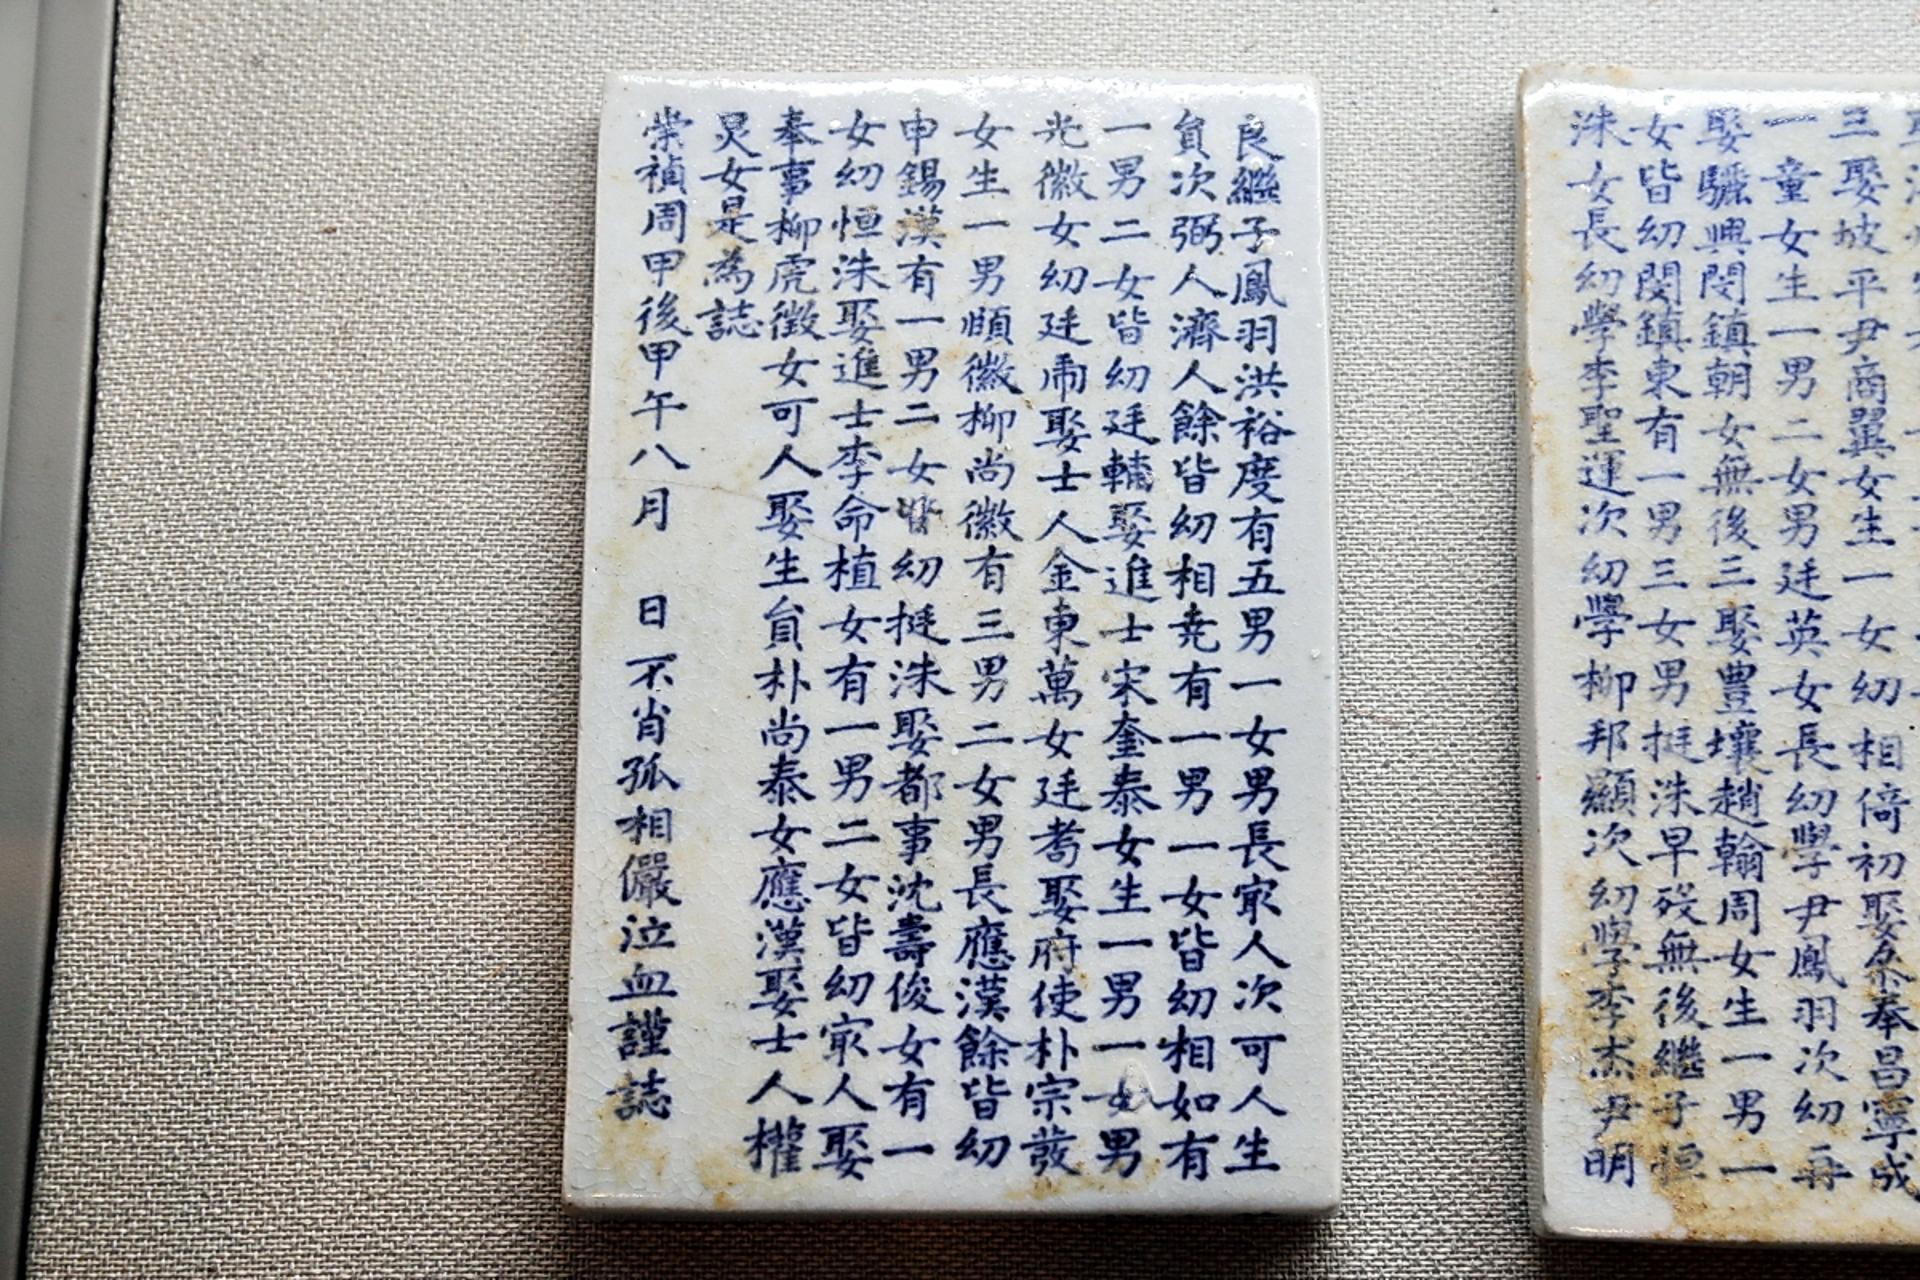 三娶坡平尹商翼女生一女幼相倚初娶奉昌寧成
一童女生一男二女男廷英女長幼學尹鳳羽次幼再
娶驪興閔鎮朝女無後三娶豊壤趙翰周女生一男一
女皆幼閔鎮東有一男三女男挺洙早歿無後繼子恒
洙女長幼學李聖運次幼學柳邦顯次幼學李杰尹明
良繼子鳳羽洪裕度有五男一女男長㝡人次可人生
貟次弼人濟人餘皆幼相堯有一男一女皆幼相如有
一男二女皆幼廷輔娶進士宋奎泰女生一男一女男
光徽女幼廷娶士人金東萬女廷耉娶府使朴宗發
女生一男頤徽柳尚徽有三男二女男長應漢餘皆幼
申錫漢有一男二女皆幼挺洙娶都事沈壽俊女有一
女幼恒洙娶進士李命植女有一男二女皆幼㝡人娶
奉事柳虎徵女可人娶生貟朴尚泰女應漢娶士人權
炅女是為誌
崇禎周甲後甲午八月 日不肖孤相儼泣血謹誌